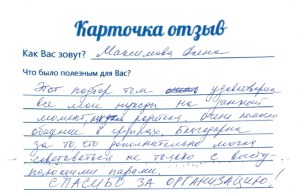 Карточка отзыв
Как Вас зовут? Максимова Елена
Что было полезным для Вас?
Этот подбор тем удовлетворил
все мои нужды на данный
момент, коротко. Очень полезно
общение в группах. Благодарна
за то, что дополнительно можно
советоваться не только с высту-
пающими парами.
СПАСИБО ЗА ОРГАНИЗАЦИЮ!